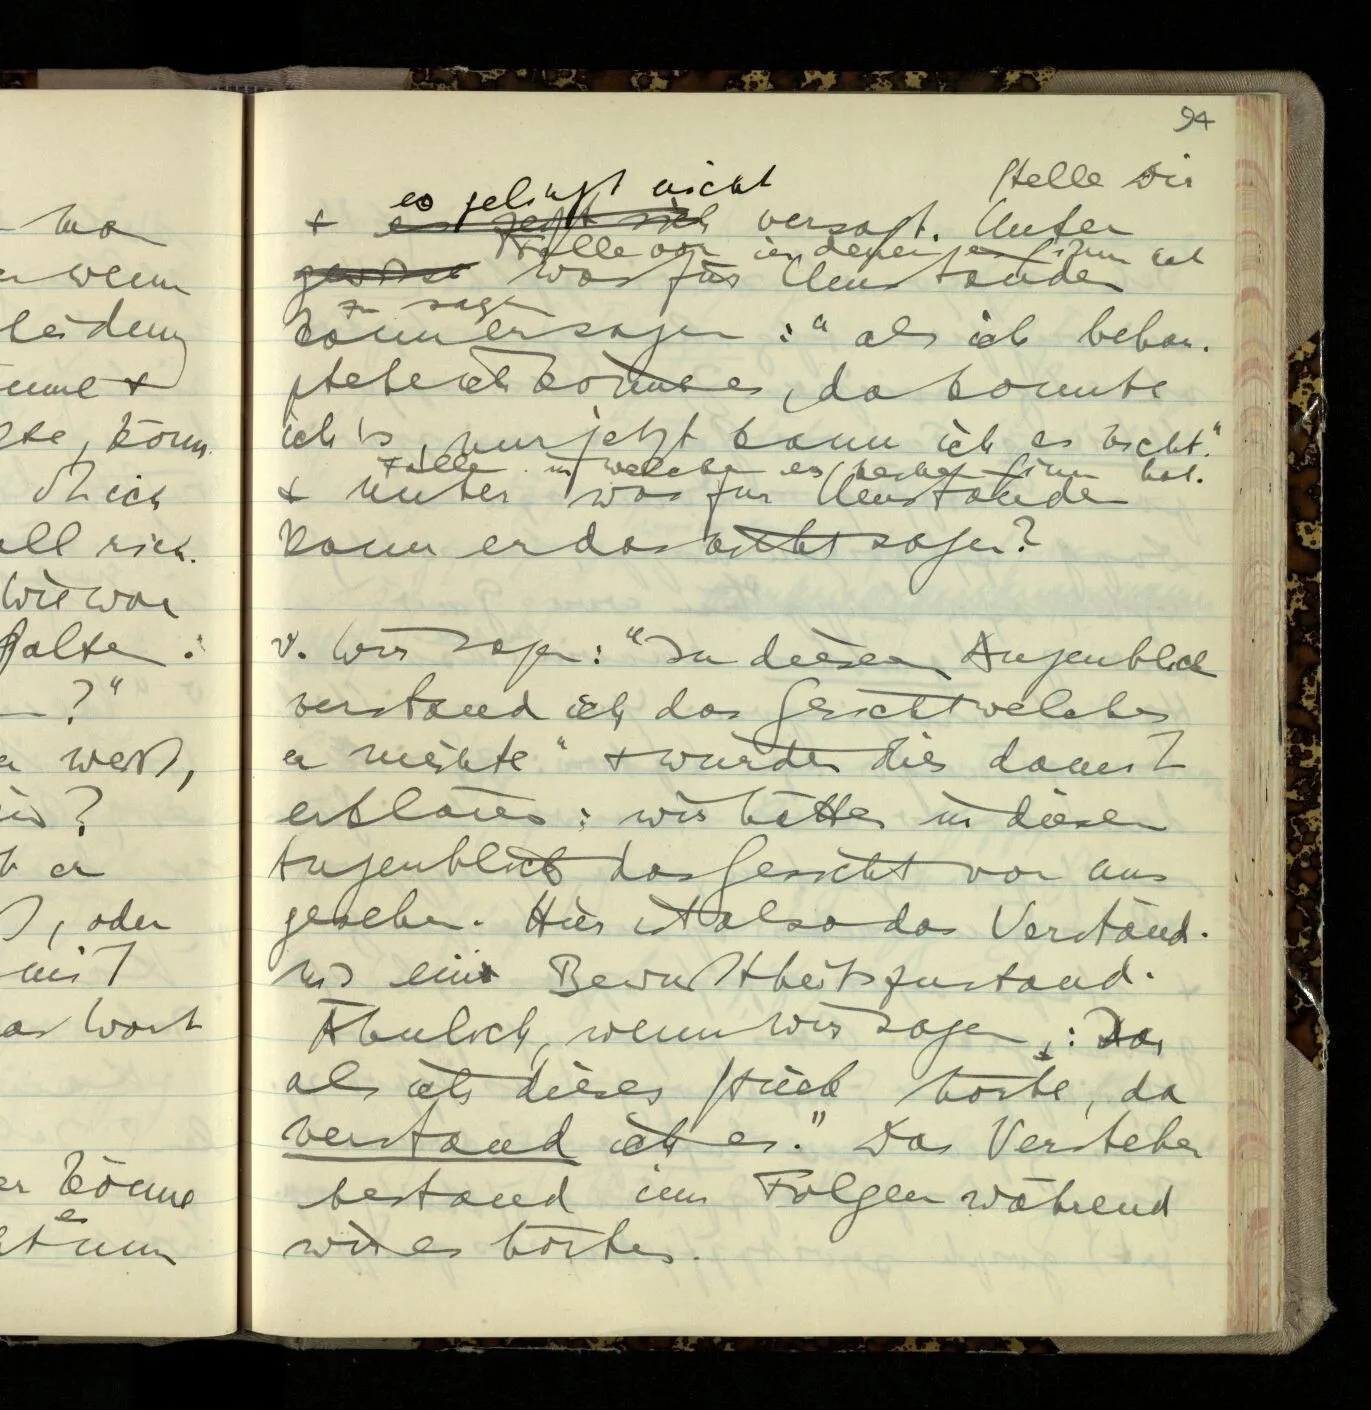 94
Stelle Dir
es gelingt nicht
+ es zeigt sich versagt. Unter
Fälle vor in denen es Sinn hat
was für Umständen
zu sagen
kann er sagen: "als ich behau-
ptete ich könne es, da konnte
ich's, nur jetzt kann ich es nicht."
Fälle in welchen es Sinn hat.
+ unter was für Umständen
kann er das nicht sagen?
v. Wir sagen: "In diesem Augenblick
verstand ich das Gesicht welches
er machte" + würden dies damit
erklären: wir hätten in diesem
Augenblick das Gesicht vor uns
gesehen. Hier ist also das Verständ-
nis ein Bewußtheitszustand.
Ähnlich, wenn wir sagen: Da
als ich dieses Stück hörte, da
verstand ich es." Das Verstehen
bestand im Folgen während
wir es hörten.
wenn
+
oder
mit
das Wort
er könne
es